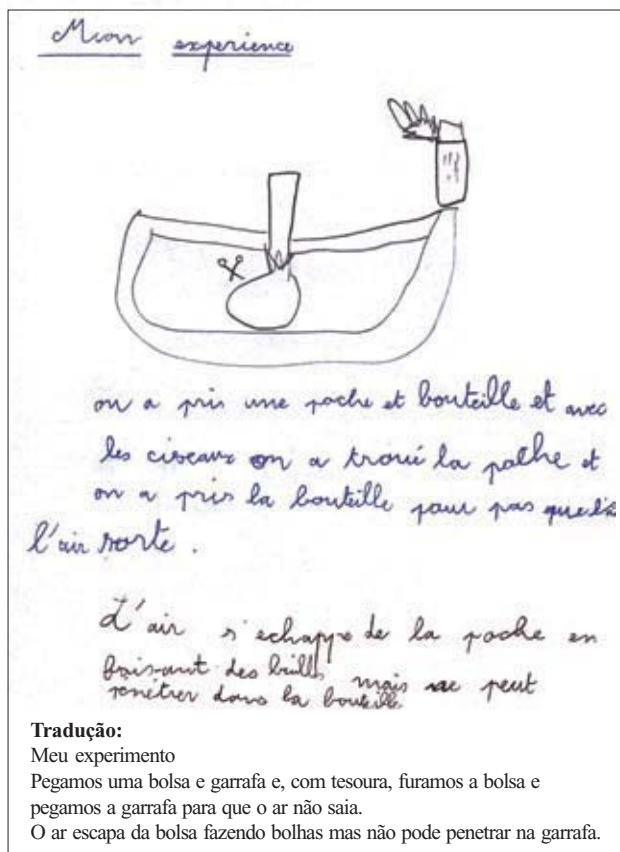 Mon experience
on a pris une poche et bouteille et avec
les ciseaux on a troué la poche et
on a pris la bouteille pour pas que
l'air sorte.
L'air s'echappe de la poche en
faisant des bulls mais ne peut
penétrer dans la bouteille
Tradução:
Meu experimento
Pegamos uma bolsa e garrafa e, com tesoura, furamos a bolsa e
pegamos a garrafa para que o ar não saia.
O ar escapa da bolsa fazendo bolhas mas não pode penetrar na garrafa.